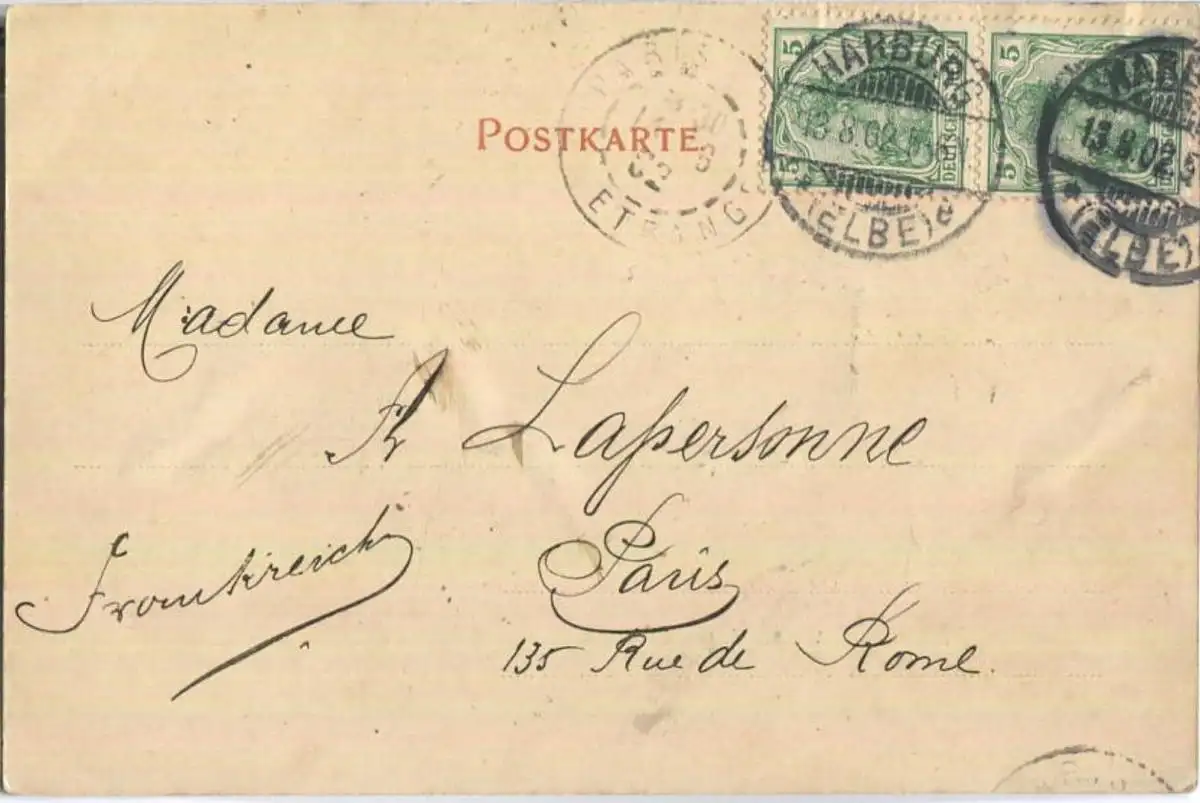 POSTKARTE
PARIS
ETRANG
5 5 DEUTSCHES
HARBURG
13.8.02
(ELBE) d
5 5
HARB
13.8.02
(ELBE)
Madame
Lapersonne
Frankreich
Paris
135 Rue de Rome.